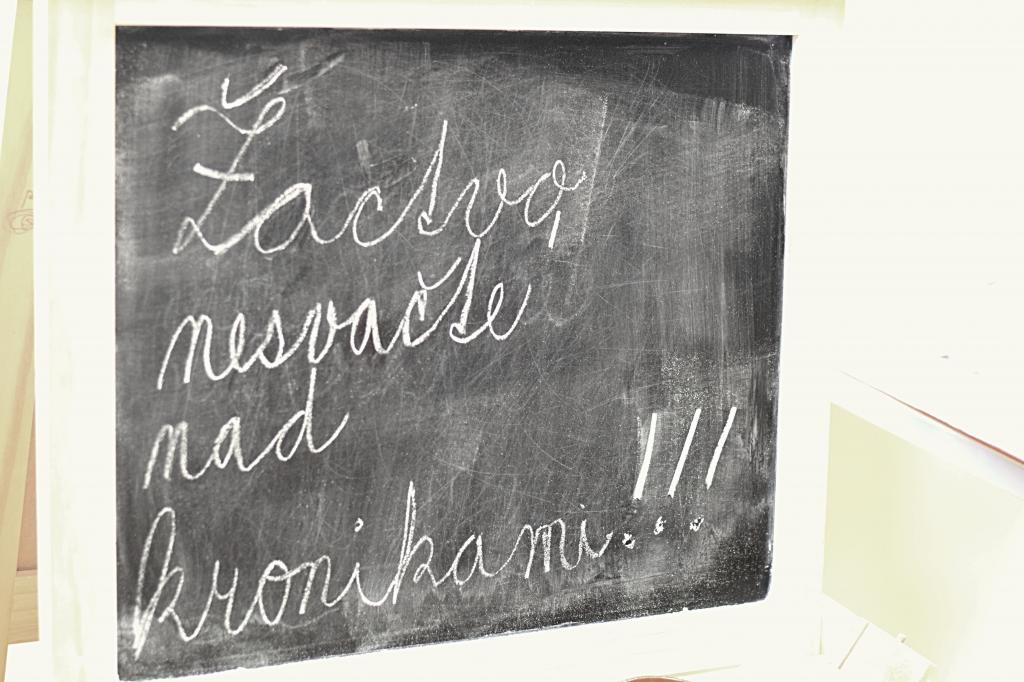 Žactvo,
nesvačte
nad
kronikami!!!